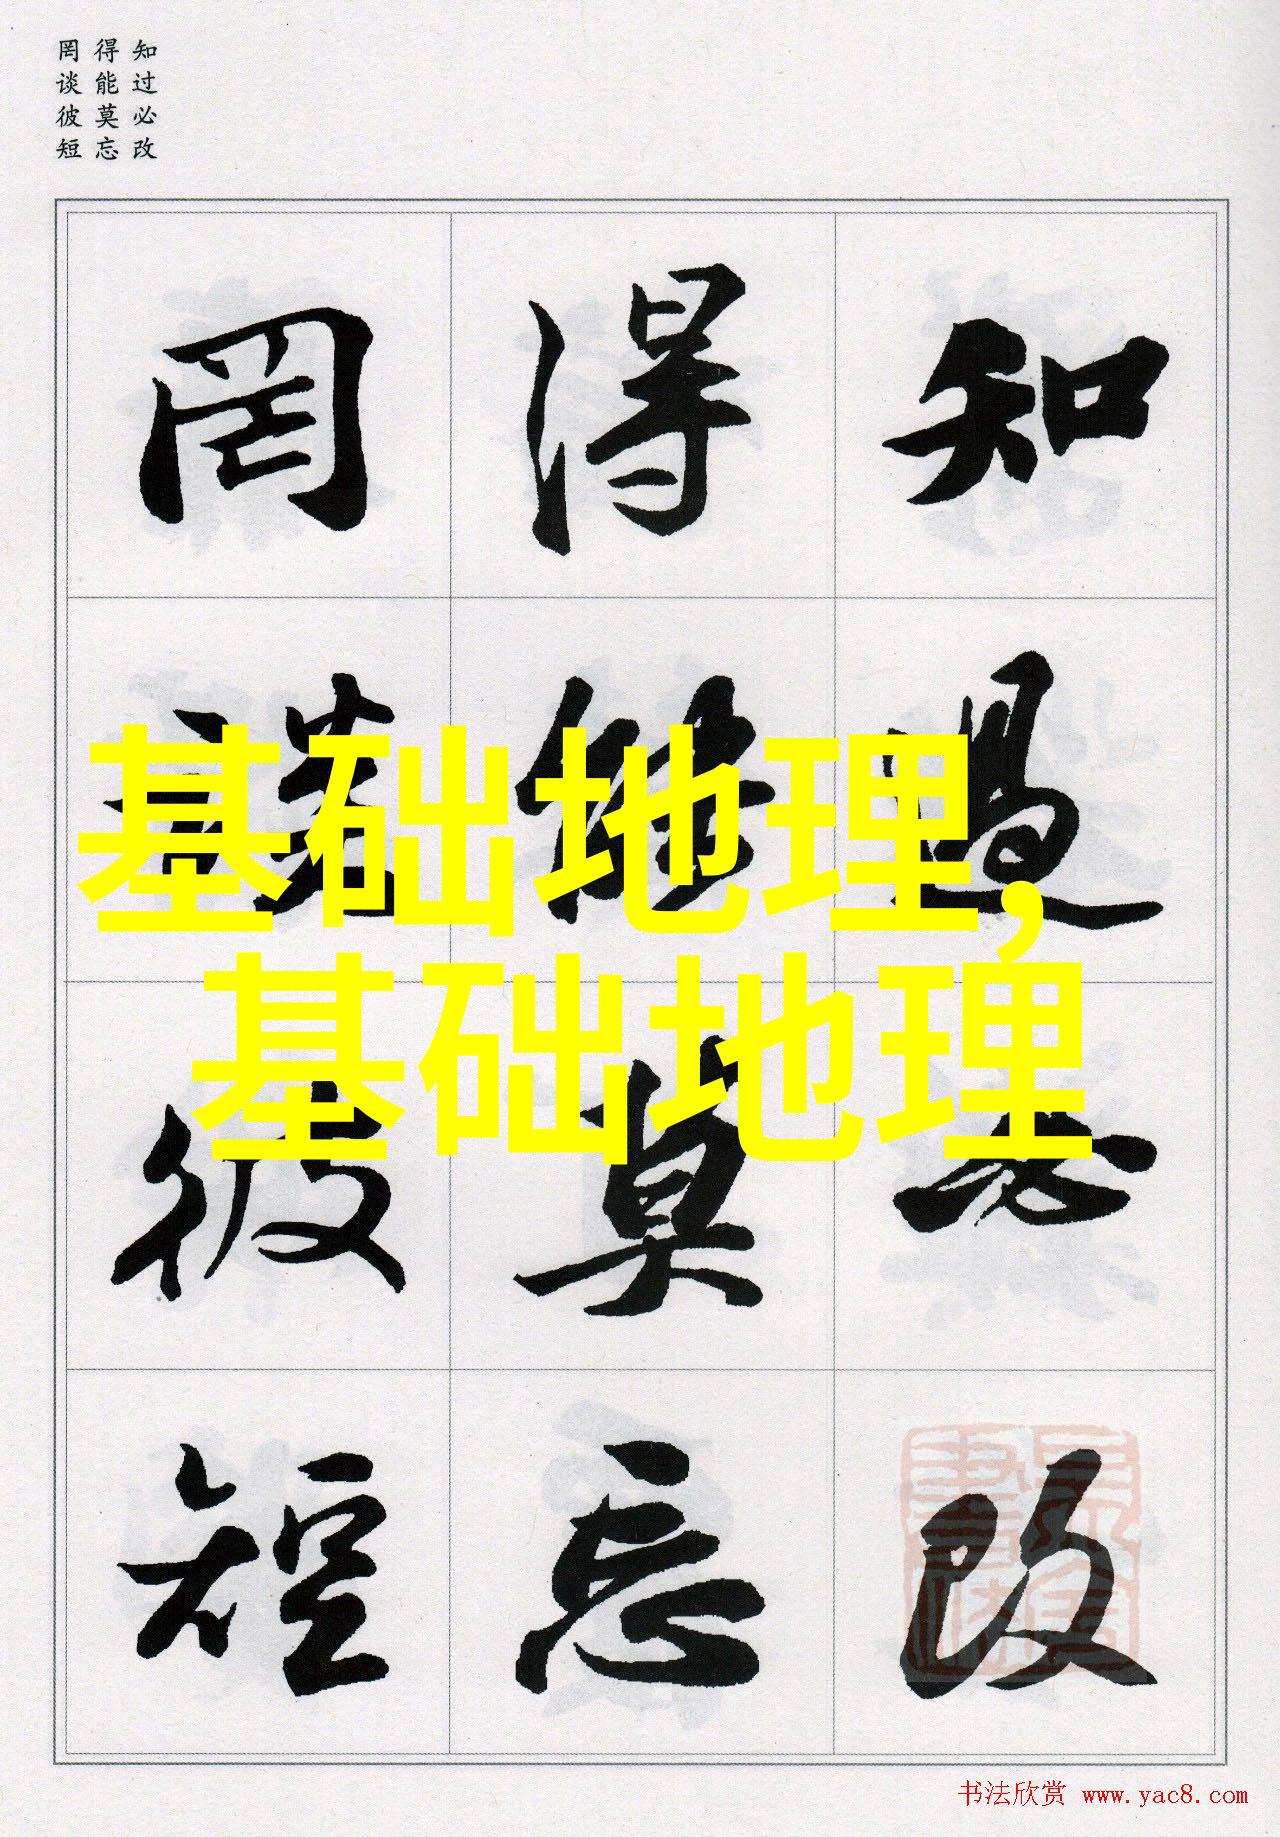 知过必改
得能莫忘
罔谈彼短
知過必改
得能莫忘
罔談彼短
基础地理,
基础地理
书法欣赏 www.yac8.com